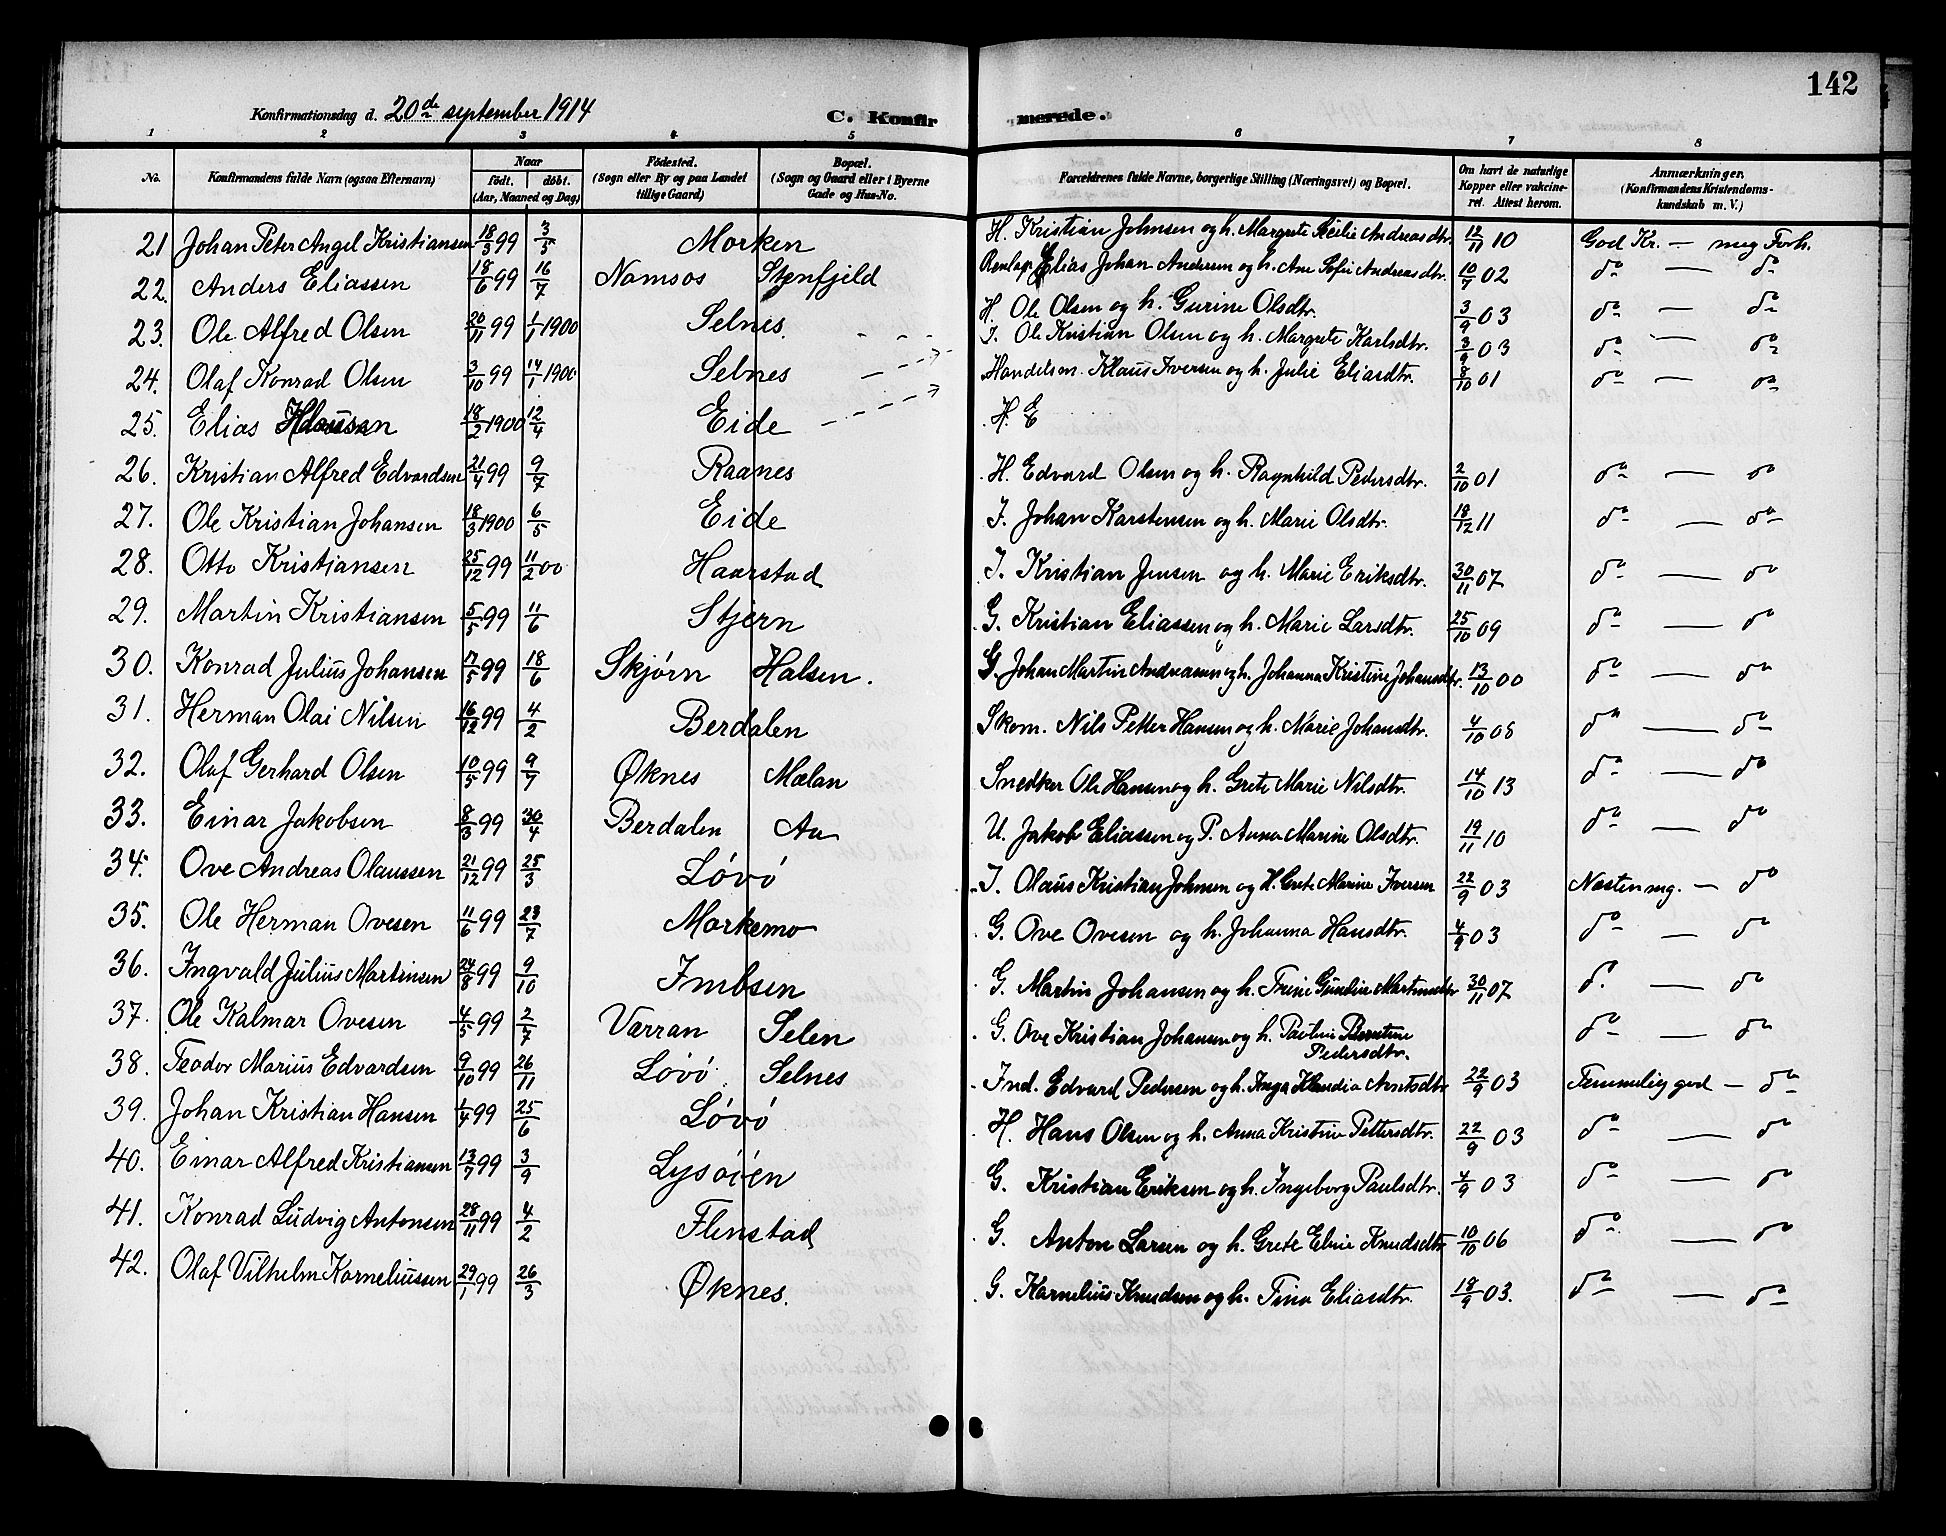 142
Konfirmationsdag d. 20de september 1914 C. Konfirmerede.
1 2 3 4 5 6 7 8
No. Konfirmandens fulde Navn (ogsaa Efternavn) Naar født. døbt. (Aar, Maaned og Dag) Fødested. (Sogn eller By og paa Landet tillige Gaard) Bopæl. (Sogn og Gaard eller i Byerne Gade og Hus-No. Forældrenes fulde Navne, borgerlige Stilling (Næringsvei) og Bopæl. Om havt de naturlige Kopper eller vakcineret. Attest herom. Anmærkninger. (Konfirmandens Kristendomskundskab m. V.)
21 Johan Peter Angel Kristiansen 18/3 99 3/5 Morken H. Kristian Johnsen og h. Margrete Secilie Andreasdtr. 12/11 10 God Kr. — meg Forh.
22. Anders Eliassen 18/6 99 16/7 Namsos Stenfjeld Elias Johan Andersen og h. Ane Sofie Andreasdtr. 10/7 02 do — do
23. Ole Alfred Olsen 20/11 99 1/1 1900 Selnes. H. Ole Olsen og h. Gurine Olsdtr. 3/9 03 do — do
24. Olaf Konrad Olsen 3/10 99 14/1 1900 Selnes I. Ole Kristian Olsen og h. Margrete Karlsdtr. 3/9 03 do — do
25. Elias Klausen 18/2 1900 12/4 Eide Handelsm. Klaus Iversen og h. Julie Eliasdtr. 8/10 01 do — do
H. E
26. Kristian Alfred Edvardsen 21/4 99 9/7 Raanes H. Edvard Olsen og h. Ragnhild Pedersdtr. 2/10 01 do — do
27. Ole Kristian Johansen 18/3 1900 6/5 Eide I. Johan Karstensen og h. Marie Olsdtr. 18/12 11 do — do
28. Otto Kristiansen 25/12 99 11/2 00 Haarstad I. Kristian Jensen og h. Marie Eriksdtr. 30/11 07 do — do
29. Martin Kristiansen 5/5 99 11/6 Stjern G. Kristian Eliassen og h. Marie Larsdtr. 25/10 09 do — do
30. Konrad Julius Johansen 17/5 99 18/6 Skjørn Halsen. G. Johan Martin Andreassen og h. Johanna Kristine Johansdtr. 13/10 00 do — do
31. Herman Olai Nilsen 16/12 99 4/2 Berdalen Skom. Nils Petter Hansen og h. Marie Johansdtr. 4/10 05 do — do
32. Olaf Gerhard Olsen 10/5 99 9/7 Øknes Mælan Snedker Ole Hansen og h. Grete Marie Nilsdtr. 14/10 13 do — do
33. Einar Jakobsen 8/3 99 30/4 Berdalen Aa U. Jakob Eliassen og P. Anna Marine Olsdtr. 19/11 10 do — do
34. Ove Andreas Olaussen 21/12 99 25/3 Løvø I. Olaus Kristian Johnsen og H. Grete Marine Iversen 22/9 03 Næsten mg. — do
35. Ole Herman Ovesen 11/6 99 23/7 Morkemo G. Ove Ovesen og h. Johanna Hansdtr. 4/9 03 do — do
36. Ingvald Julius Martinsen 24/8 99 9/10 Imbsen G. Martin Johansen og h. Trine Gundine Martinsdtr 30/11 07 do — do
37. Ole Kalmar Ovesen 4/5 99 2/7 Værran Selen G. Ove Kristian Johansen og h. Pauline Pedersdtr. do — do
38. Teodor Marius Edvardsen 9/10 99 26/11 Løvø Selnes Ind. Edvard Pedersen og h. Inga Klaudia Arntsdtr 22/9 03 Temmelig god — do
39. Johan Kristian Hansen 1/4 99 25/6 Løvø H. Hans Olsen og h. Anna Kristine Pettersdtr. 22/9 03 do — do
40. Einar Alfred Kristiansen 13/7 99 3/9 Lysøien G. Kristian Eriksen og h. Ingeborg Paulsdtr. 4/9 03 do — do
41. Konrad Ludvig Antonsen 28/11 99 4/2 Flenstad G. Anton Larsen og h. Grete Eline Knudsdtr 10/10 06 do — do
42. Olaf Vilhelm Korneliussen 29/1 99 26/3 Øknes. G. Kornelius Knudsen og h. Tina Eliasdtr. 18/9 03. do — do